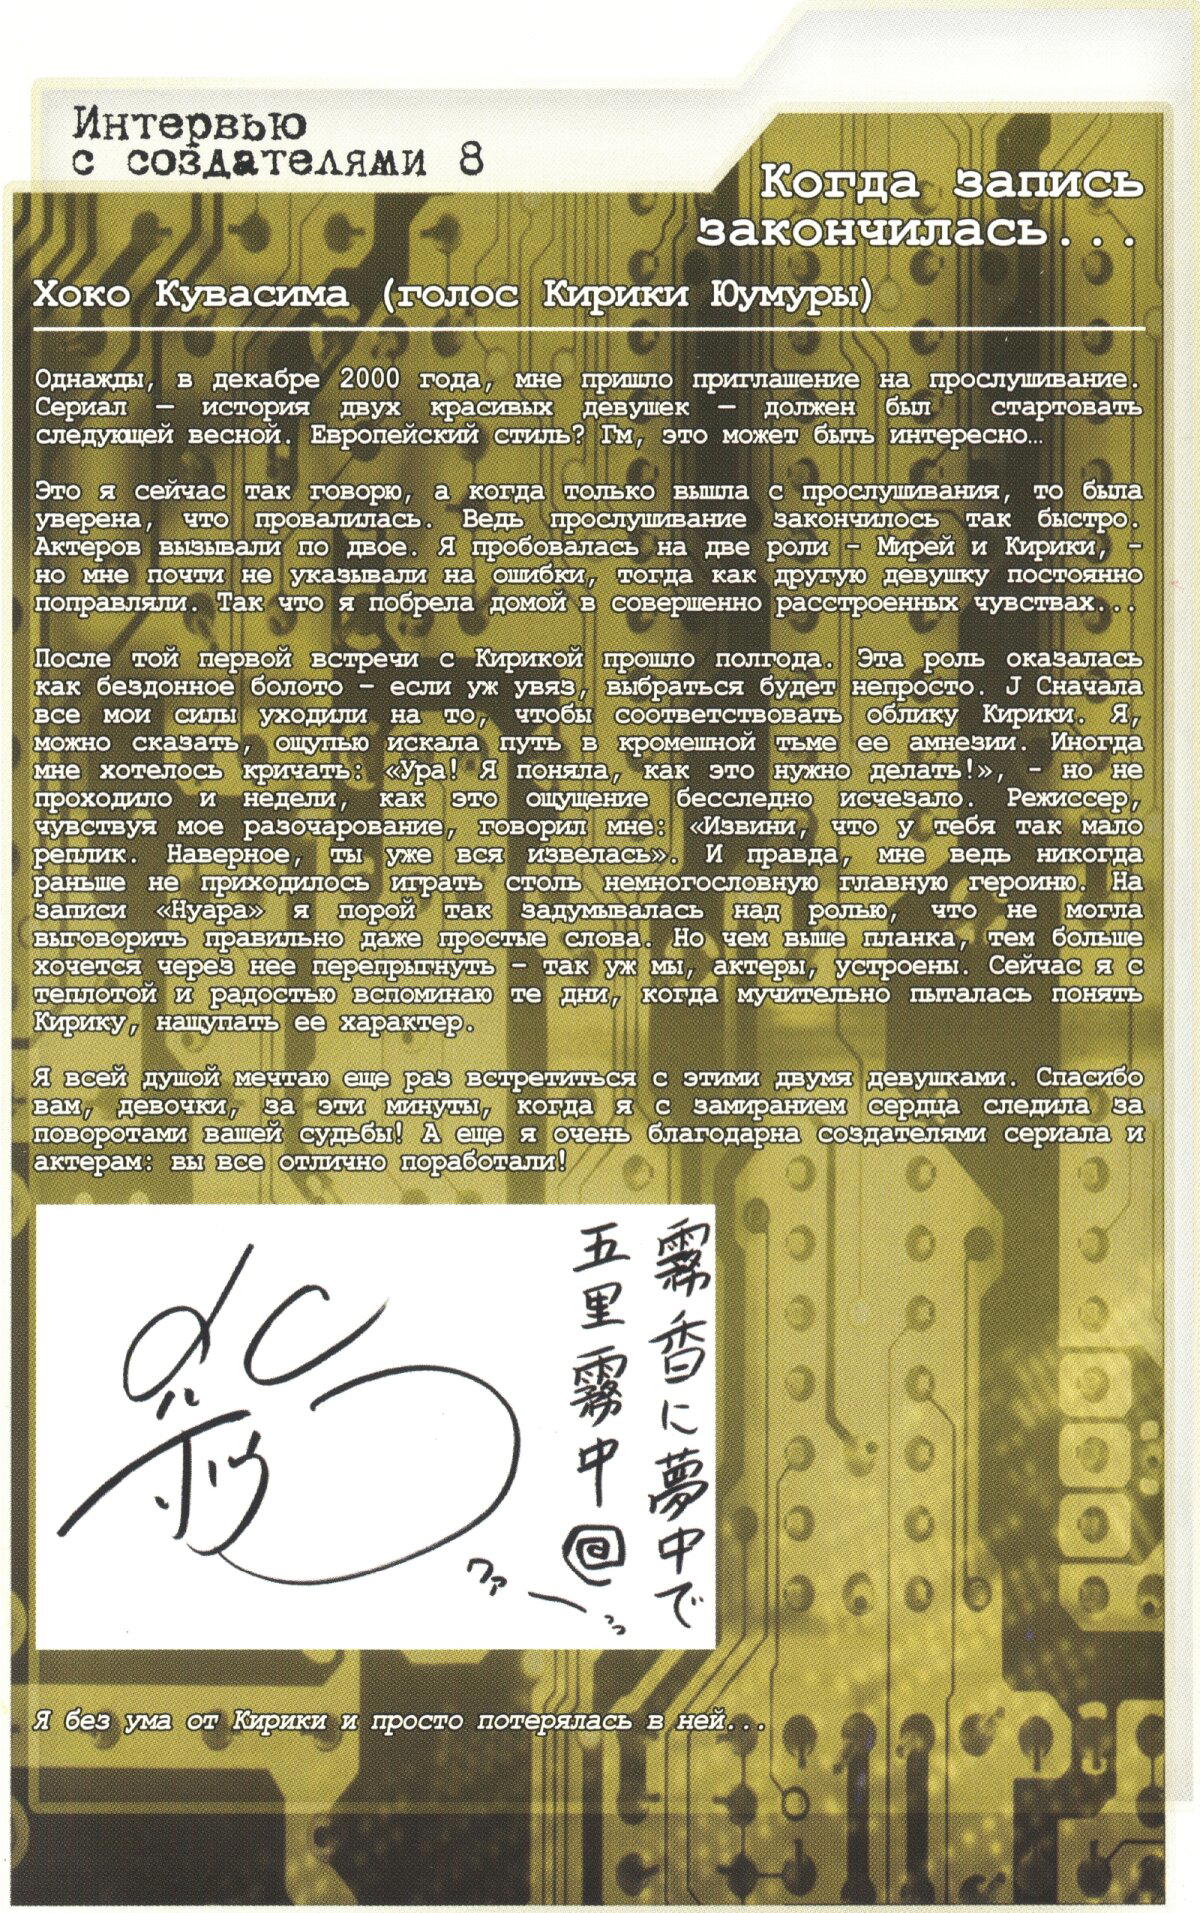 Интервью
с создателями 8
Когда запись
закончилась...
Хоко Кувасима (голос Кирики Юумуры)
Однажды, в декабре 2000 года, мне пришло приглашение на прослушивание.
Сериал — история двух красивых девушек — должен был стартовать
следующей весной. Европейский стиль? Гм, это может быть интересно…
Это я сейчас так говорю, а когда только вышла с прослушивания, то была
уверена, что провалилась. Ведь прослушивание закончилось так быстро.
Актеров вызывали по двое. Я пробовалась на две роли – Мирей и Кирики, –
но мне почти не указывали на ошибки, тогда как другую девушку постоянно
поправляли. Так что я побрела домой в совершенно расстроенных чувствах...
После той первой встречи с Кирикой прошло полгода. Эта роль оказалась
как бездонное болото – если уж увяз, выбраться будет непросто. J Сначала
все мои силы уходили на то, чтобы соответствовать облику Кирики. Я,
можно сказать, ощупью искала путь в кромешной тьме ее амнезии. Иногда
мне хотелось кричать: «Ура! Я поняла, как это нужно делать!», – но не
проходило и недели, как это ощущение бесследно исчезало. Режиссер,
чувствуя мое разочарование, говорил мне: «Извини, что у тебя так мало
реплик. Наверное, ты уже вся извелась». И правда, мне ведь никогда
раньше не приходилось играть столь немногословную главную героиню. На
записи «Нуара» я порой так задумывалась над ролью, что не могла
выговорить правильно даже простые слова. Но чем выше планка, тем больше
хочется через нее перепрыгнуть – так уж мы, актеры, устроены. Сейчас я с
теплотой и радостью вспоминаю те дни, когда мучительно пыталась понять
Кирику, нащупать ее характер.
Я всей душой мечтаю еще раз встретиться с этими двумя девушками. Спасибо
вам, девочки, за эти минуты, когда я с замиранием сердца следила за
поворотами вашей судьбы! А еще я очень благодарна создателями сериала и
актерам: вы все отлично поработали!
霧香に夢中で
五里霧中
ワァーっ
Я без ума от Кирики и просто потерялась в ней...